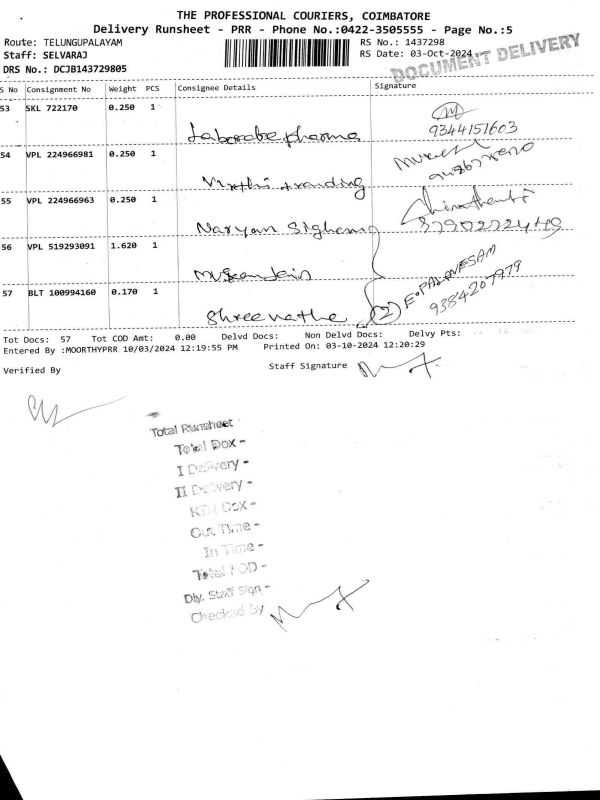 THE PROFESSIONAL COURIERS, COIMBATORE
Delivery Runsheet - PRR - Phone No.:0422-3505555 - Page No.:5
Route: TELUNGUPALAYAM RS No.: 1437298
Staff: SELVARAJ RS Date: 03-Oct-2024
DRS No.: DCJB143729805
DOCUMENT DELIVERY
S No Consignment No Weight PCS Consignee Details Signature
53 SKL 722170 0.250 1
pharma
9344151603
54 VPL 224966981 0.250 1
55 VPL 224966963 0.250 1
Naryan
56 VPL 519293091 1.620 1
57 BLT 100994160 0.170 1
Shree (2) E.PALANESAM
9384207979
Tot Docs: 57 Tot COD Amt: 0.00 Delvd Docs: Non Delvd Docs: Delvy Pts:
Entered By :MOORTHYPRR 10/03/2024 12:19:55 PM Printed On: 03-10-2024 12:20:29
Verified By Staff Signature
Total Runsheet
Total Dox -
I Delivery -
II Delivery -
RTN Dox -
Out Time -
In Time -
Total POD -
Dly. Staff Sign -
Checked By